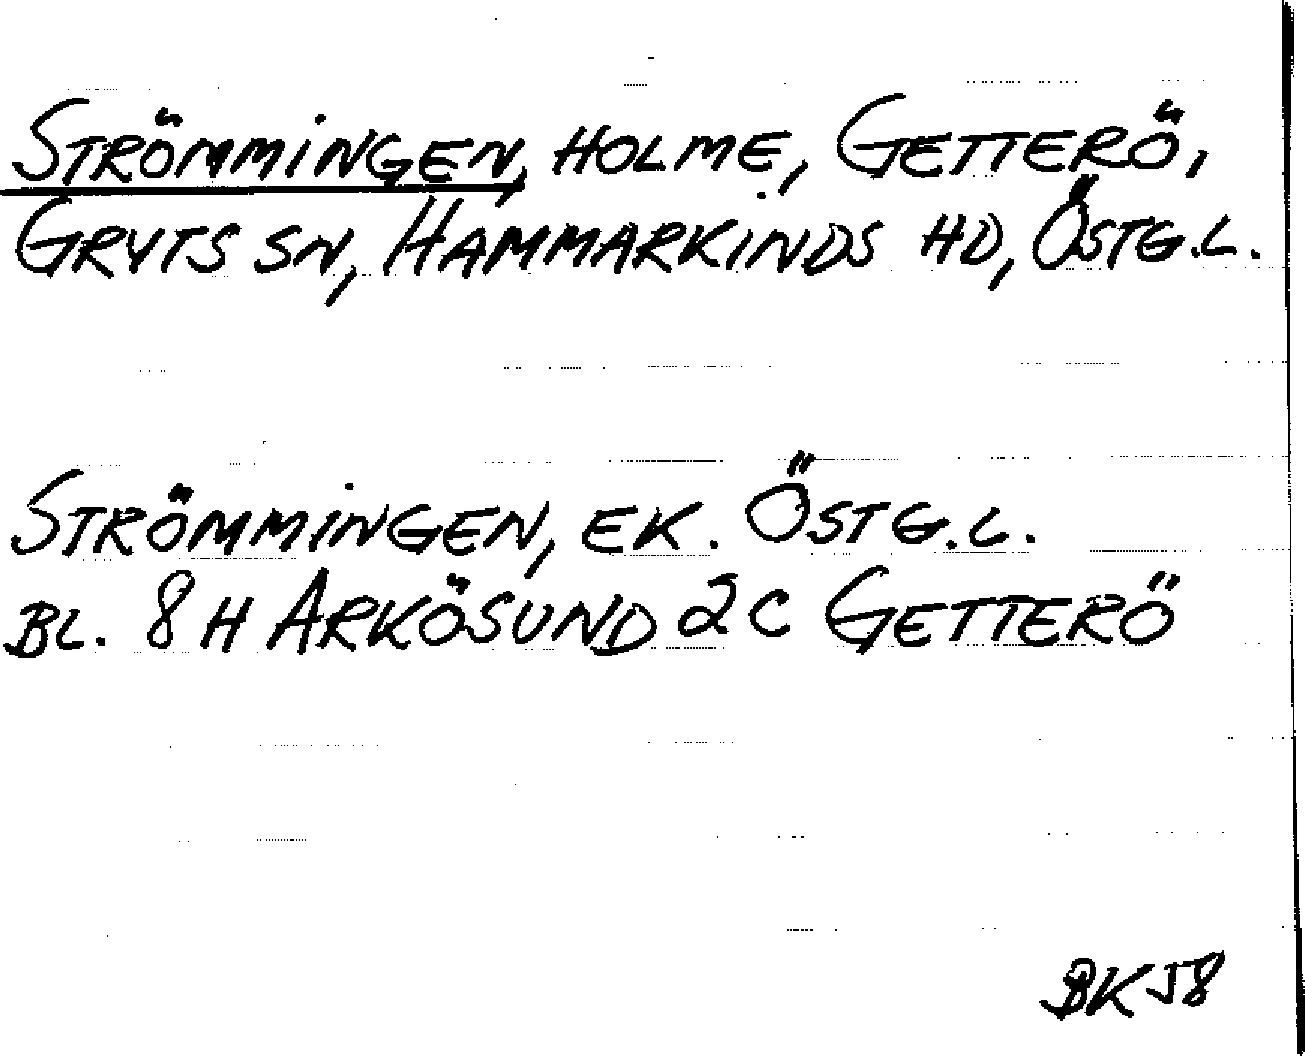 STRÖMMINGEN, HOLME, GETTERÖ,
GRYTS SN, HAMMARKINDS HD, ÖSTG.L.
STRÖMMINGEN, EK. ÖSTG.L.
BL. 8 H ARKÖSUND 2 C GETTERÖ
BK 58